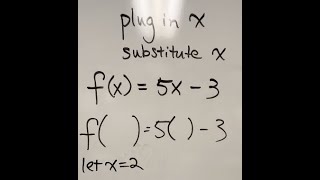 plug in x
substitute x
f(x) = 5x - 3
f( ) = 5( ) - 3
let x = 2